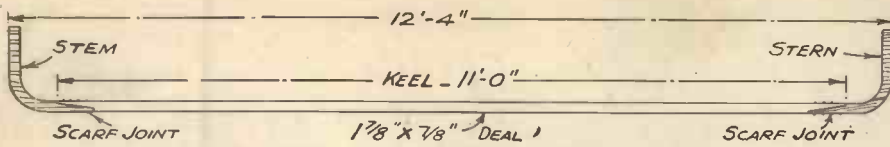 12'-4"
STEM
STERN
KEEL - 11'-0"
SCARF JOINT
1 7/8" X 7/8" DEAL
SCARF JOINT